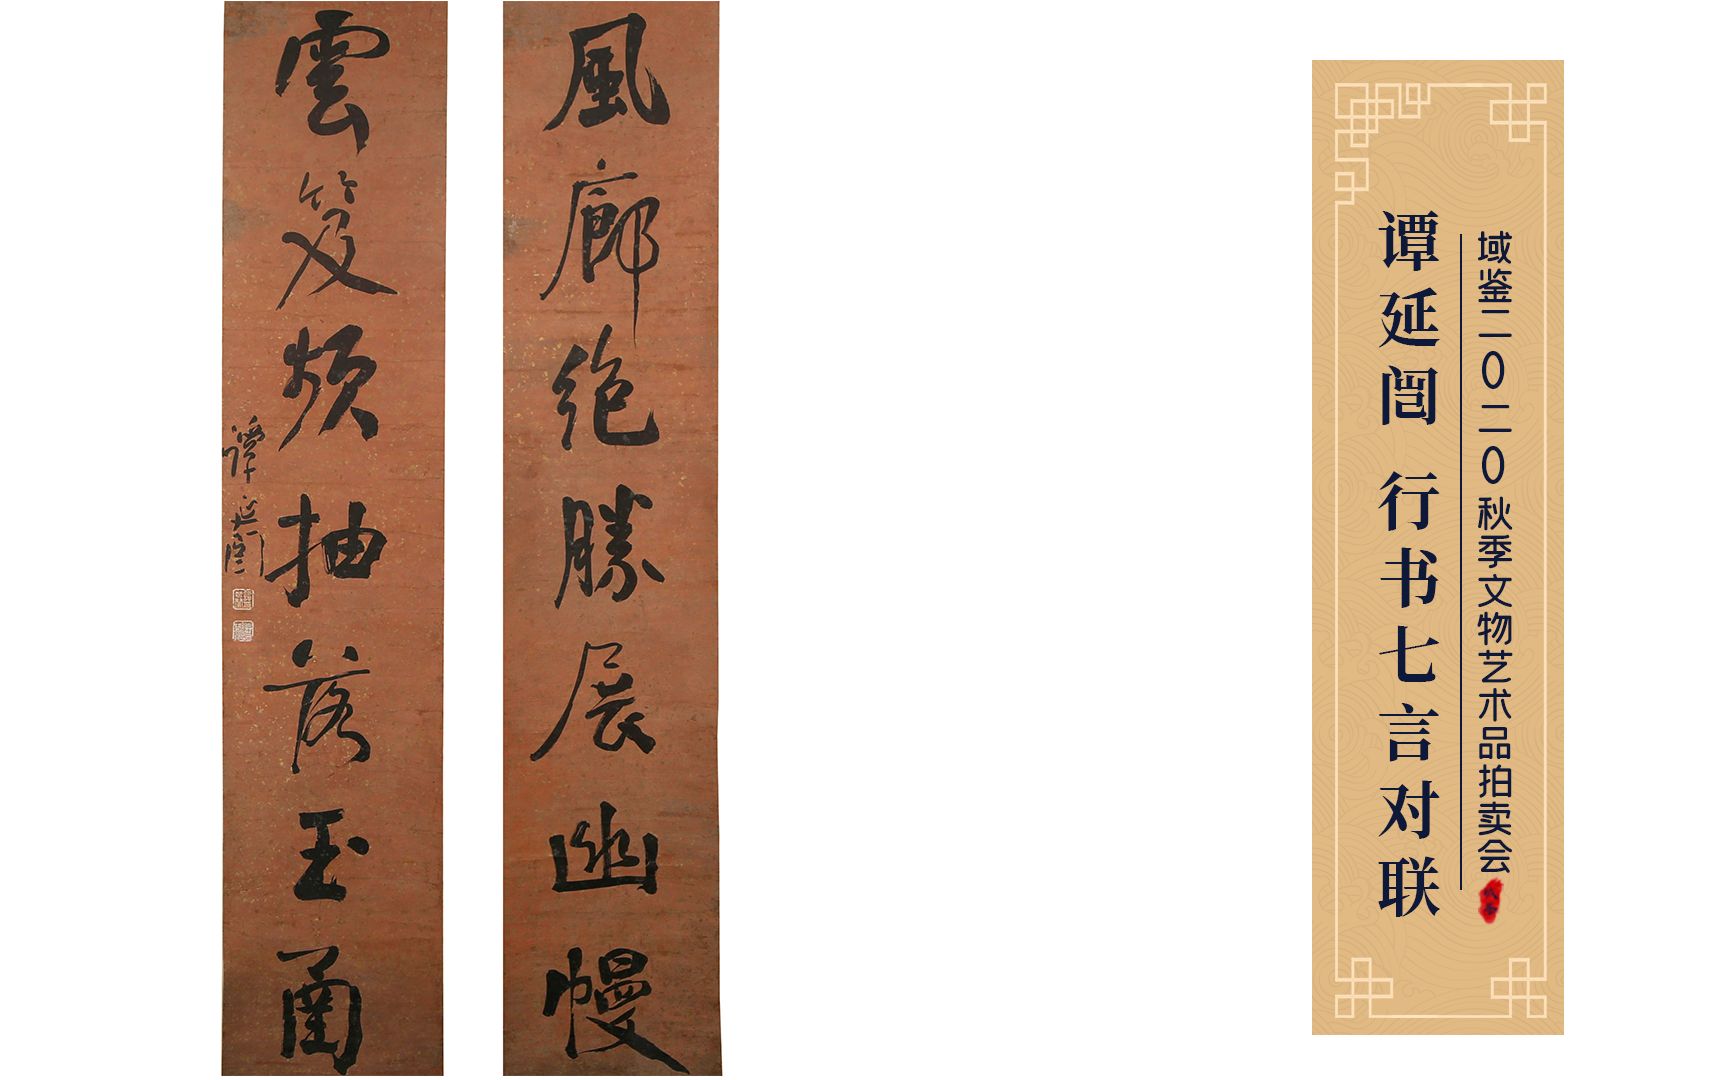 風廊绝勝展幽幔
雲笈頻抽落玉函
譚延闓
域鉴二〇二〇秋季文物艺术品拍卖会
谭延闿 行书七言对联